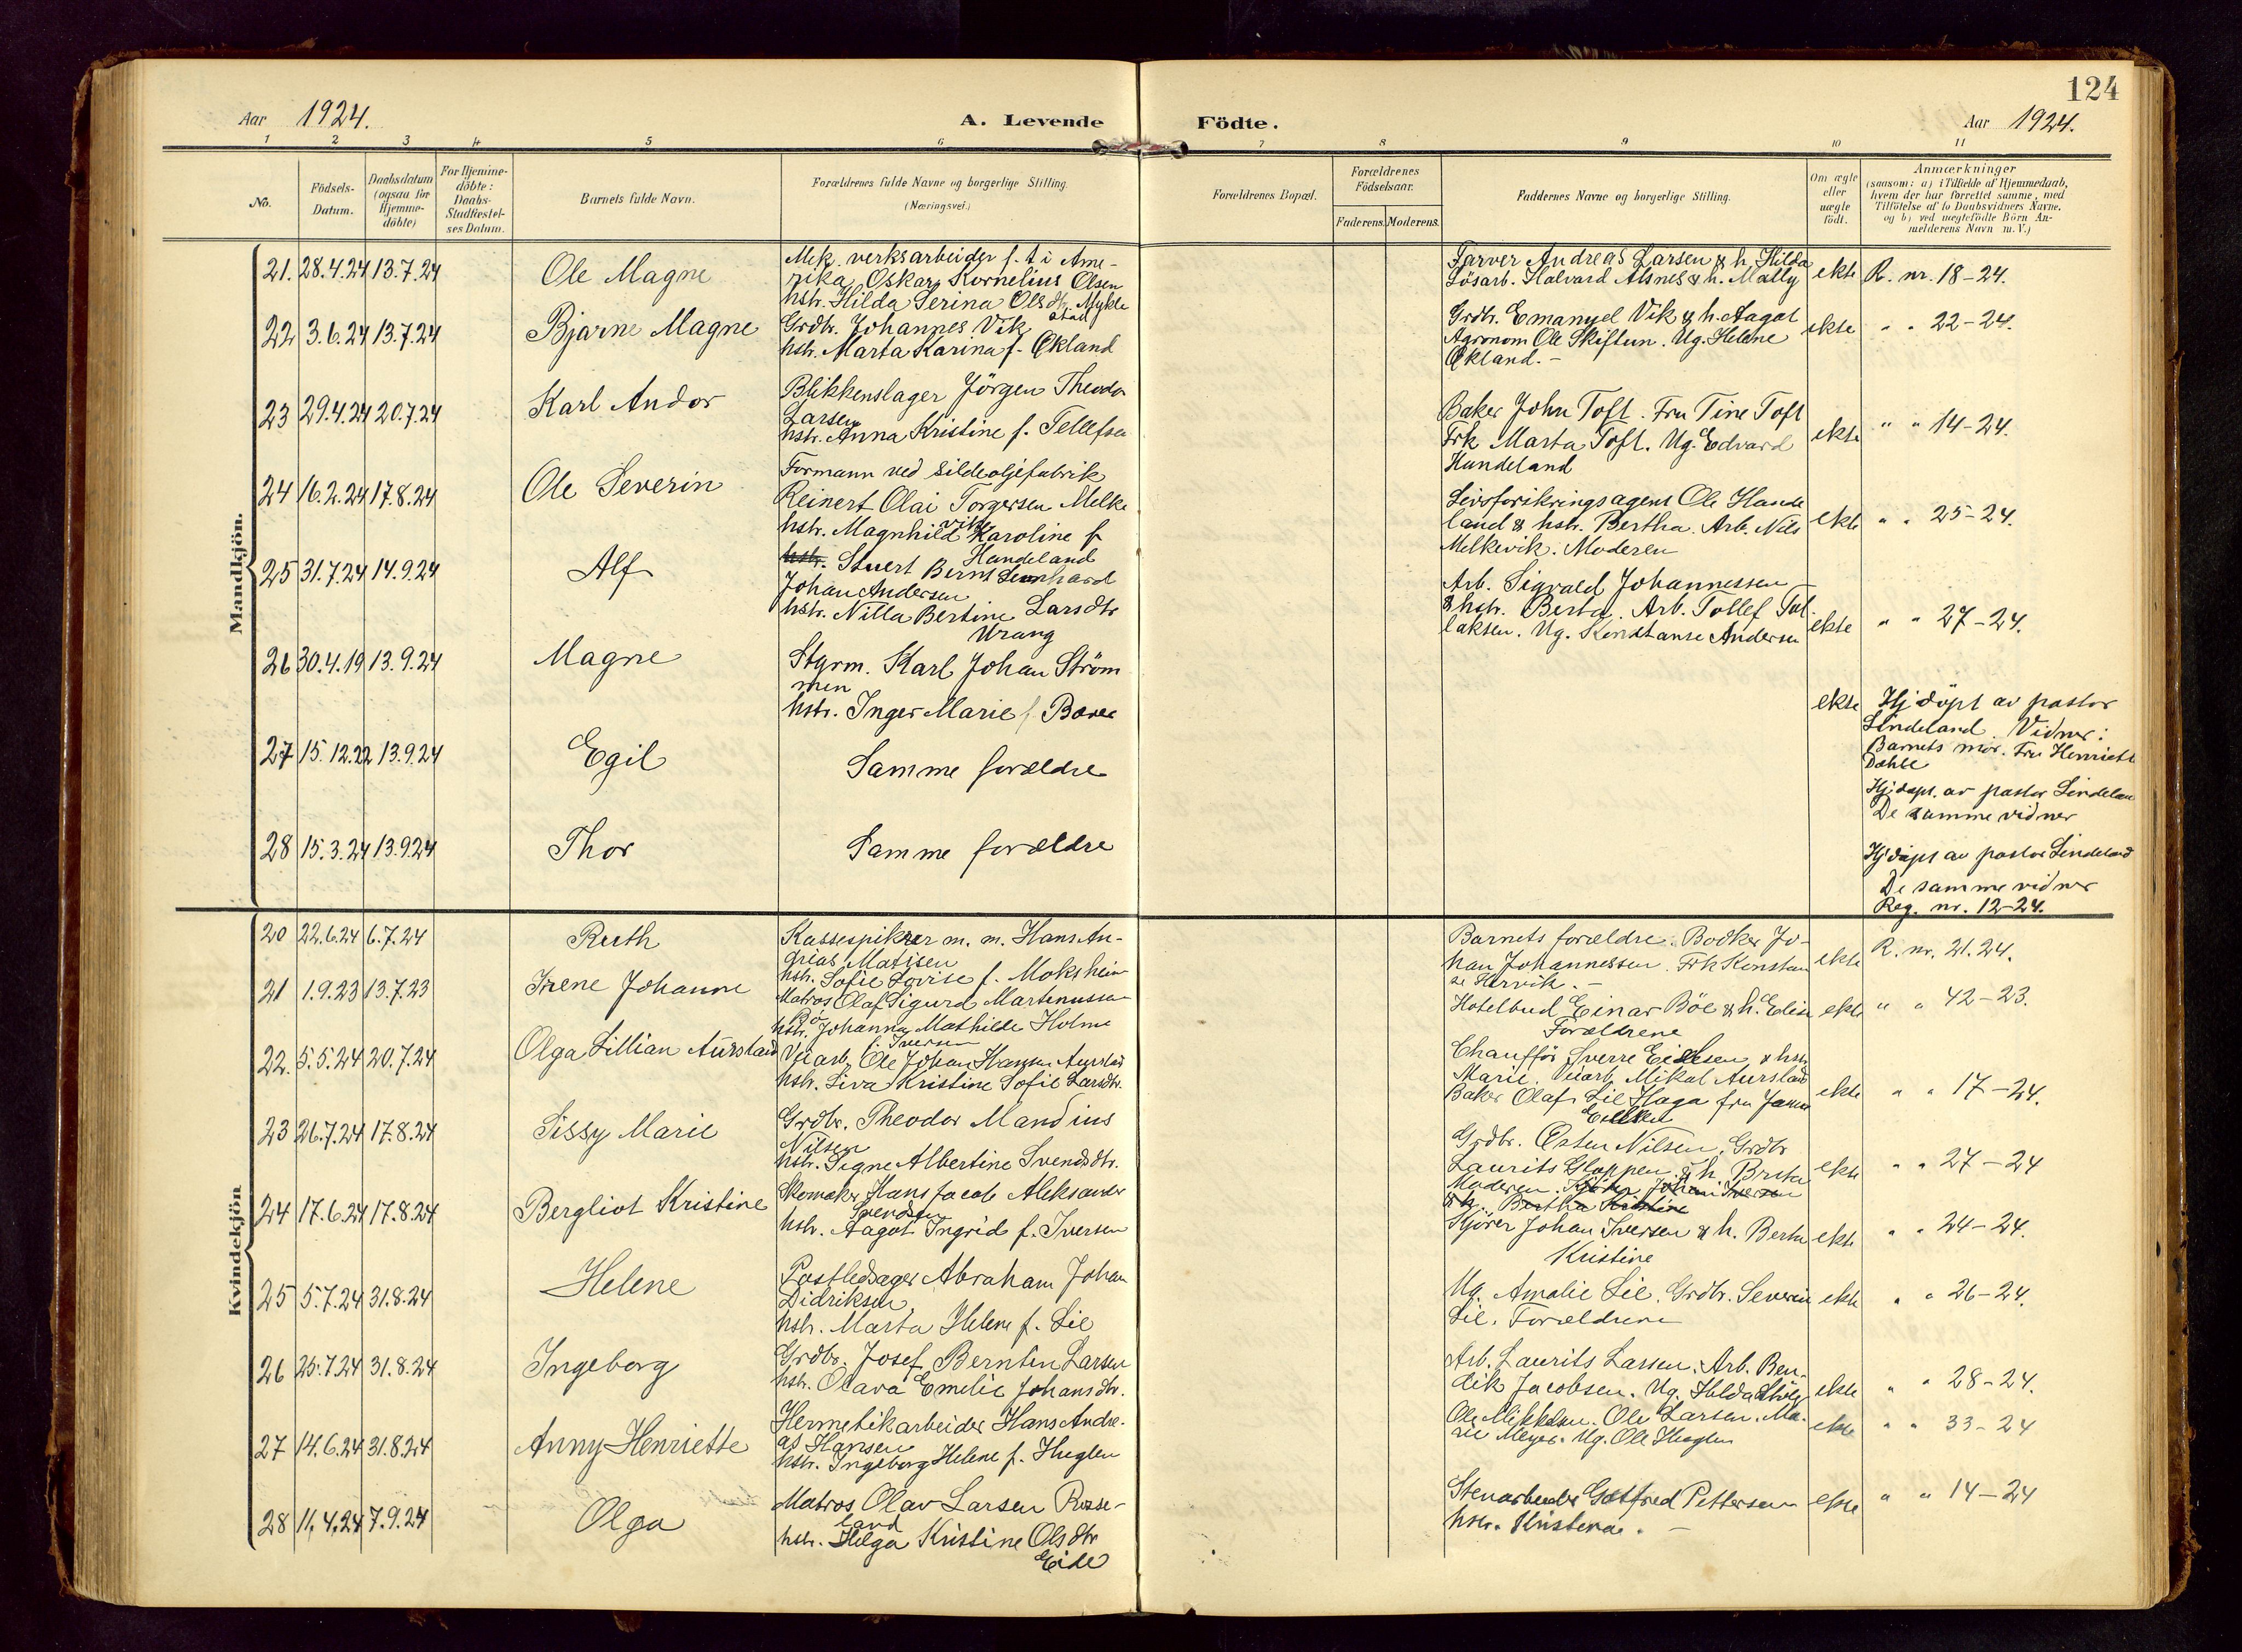 124
Aar 1924.
A. Levende Födte.
Aar 1924.
1 2 3 4 5 6 7 8 9 10 11
No.
Födsels-
Datum.
Daabsdatum
(ogsaa for
Hjemme-
döbte)
For Hjemme-
döbte:
Daabs-
Stadfæstel-
ses Datum.
Barnets fulde Navn.
Forældrenes fulde Navne og borgerlige Stilling.
(Næringsvei.)
Forældrenes Bopæl.
Forældrenes
Födselsaar.
Faderens. Moderens.
Faddernes Navne og borgerlige Stilling.
Om ægte
eller
uægte
födt.
Anmærkninger
(saasom: a) i Tilfælde af Hjemmedaab,
hvem der har forrettet samme, med
Tilföielse af to Daabsvidners Navne.
og b) ved uægtefödte Börn An-
melderens Navn m. V.)
Mandkjön.
21. 28.4.24 13.7.24 Ole Magne
Mek. verksarbeider f. t i Ame-
rika Oskar Kornelius Olsen
hstr. Hilda Serina Olsdtr. Mykle
stad
Farver Andreas Larsen & h. Hilda
Lösarb. Halvard Alsnes & h. Mally
ekte R. nr. 18-24.
22 3.6.24 13.7.24 Bjarne Magne
Grdbr. Johannes Vik
hstr. Marta Karina f. Økland
Grdbr. Emanuel Vik & h. Aagot
Agronom Ole Skiftun. Ug. Helene
Økland. -
ekte " " 22-24.
23 29.4.24 20.7.24 Karl Andor
Blikkenslager Jörgen Theodor
Larsen
hstr. Anna Kristine f. Tellefsen
Baker John Toft. Fru Tine Toft
Frk Marta Toft. Ug. Edvard
Handeland
ekte " " 14-24.
24 16.2.24 17.8.24 Ole Severin
Formann ved sildeoljefabrik
Reinert Olai Torgersen Melke
vik
hstr. Magnhild Karoline f
Handeland
Livsforsikringsagent Ole Hande
land & hstr. Bertha. Arb. Nils
Melkevik. Moderen
ekte " " 25-24.
25 31.7.24 14.9.24 Alf
hstr. Stuert Bernt Leonhard
Johan Andersen
hstr. Nilla Bertine Larsdtr
Urang
Arb. Sigvald Johannessen
& hstr. Berta. Arb. Tollef Tol
laksen. Ug. Konstanse Andersen
ekte " " 27-24.
26 30.4.19 13.9.24 Magne
Styrm. Karl Johan Ström
men
hstr. Inger Marie f Boree
ekte Hj döpt av pastor
Lindeland. Vidner:
Barnets mor. Fru Henriette
Dahle
27 15.12.22 13.9.24 Egil
Samme forældre
Hj. döpt. av pastor Lindeland
De samme vidner
28 15.3.24 13.9.24 Thor
Samme forældre
Hj döpt av pastor Lindeland
De samme vidner
Reg. nr. 12-24.
Kvindekjön
20 22.6.24 6.7.24 Ruth
Kassespikrer m. m. Hans An-
drias Matisen
hstr. Sofie Lovise f. Moksheim
Barnets forældre. Bödker Jo-
han Johannessen. Frk Konstan
se Hervik. -
ekte R. nr. 21.24.
21 1.9.23 13.7.23 Irene Johanne
Matros Olaf Sigurd Martinussen
Bö
hstr. Johanna Mathilde Holme
f. Iversen
Hotelbud Einar Böe & h. Elise
Forældrene
ekte " " 42-23.
22. 5.5.24 20.7.24 Olga Lillian Aurstad
Veiarb. Ole Johan Hansen Aurstad
hstr. Siva Kristine Sofie Larsdtr.
Chaufför Sverre Eielsen & hstr
Marie. Veiarb. Mikal Aurstad
Baker Olaf Lie Haga fru
ekte " " 17-24.
23 26.7.24 17.8.24 Sissy Marie
Grdbr. Theodor Mandius
Nilsen
hstr. Signe Albertine Svendsdtr.
Grdbr. Østen Nilsen. Grdbr
Laurits Gloppen & h. Berta
Moderen. Johan Iversen
& h. Bertha Kristine
ekte " " 27-24
24 17.6.24 17.8.24 Bergliot Kristine
Skomaker Hans Jacob Aleksander
Svendsen
hstr. Aagot Ingrid f. Iversen
Kjörer Johan Iversen & h. Berta
Kristine
ekte " " 24-24.
25 5.7.24 31.8.24 Helene
Postledsager Abraham Johan
Didriksen
hstr. Marta Helene f. Lie
Ug. Amalie Lie. Grdbr. Severin
Lie. Forældrene
ekte " " 26-24.
26 25.7.24 31.8.24 Ingeborg
Grdbr. Josef Berntin Larsen
hstr. Olava Emelie Johansdtr.
Arb. Laurits Larsen. Arb. Ben-
dik Jacobsen. Ug. Hilda
ekte " " 28-24.
27 14.6.24 31.8.24 Anny Henriette
Hermetikarbeider Hans Andre-
as Hansen
hstr. Ingeborg Helene f. Huglen
Ole Mikkelsen. Ole Larsen. Ma-
rie Meyer. Ug. Ole Huglen
ekte " " 33-24
28 11.4.24 7.9.24 Olga
Matros Olav Larsen Rosse-
land
hstr. Helga Kristine Olsdtr
Eide
Stenarbeider Gotfred Pettersen
hstr. Kristena. -
ekte " " 14-24